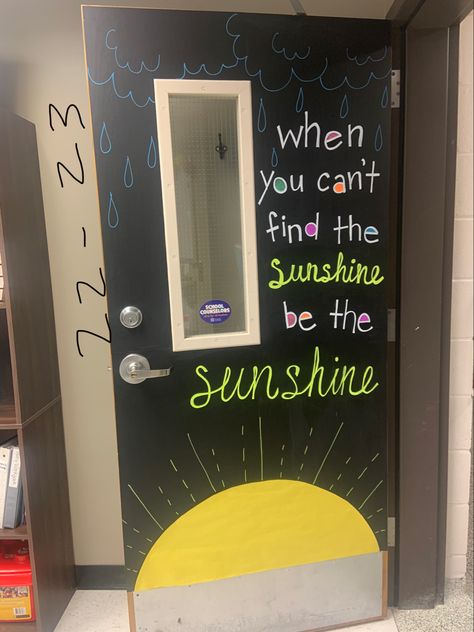 when
you can't
find the
sunshine
be the
sunshine
SCHOOL
COUNSELORS
22-23